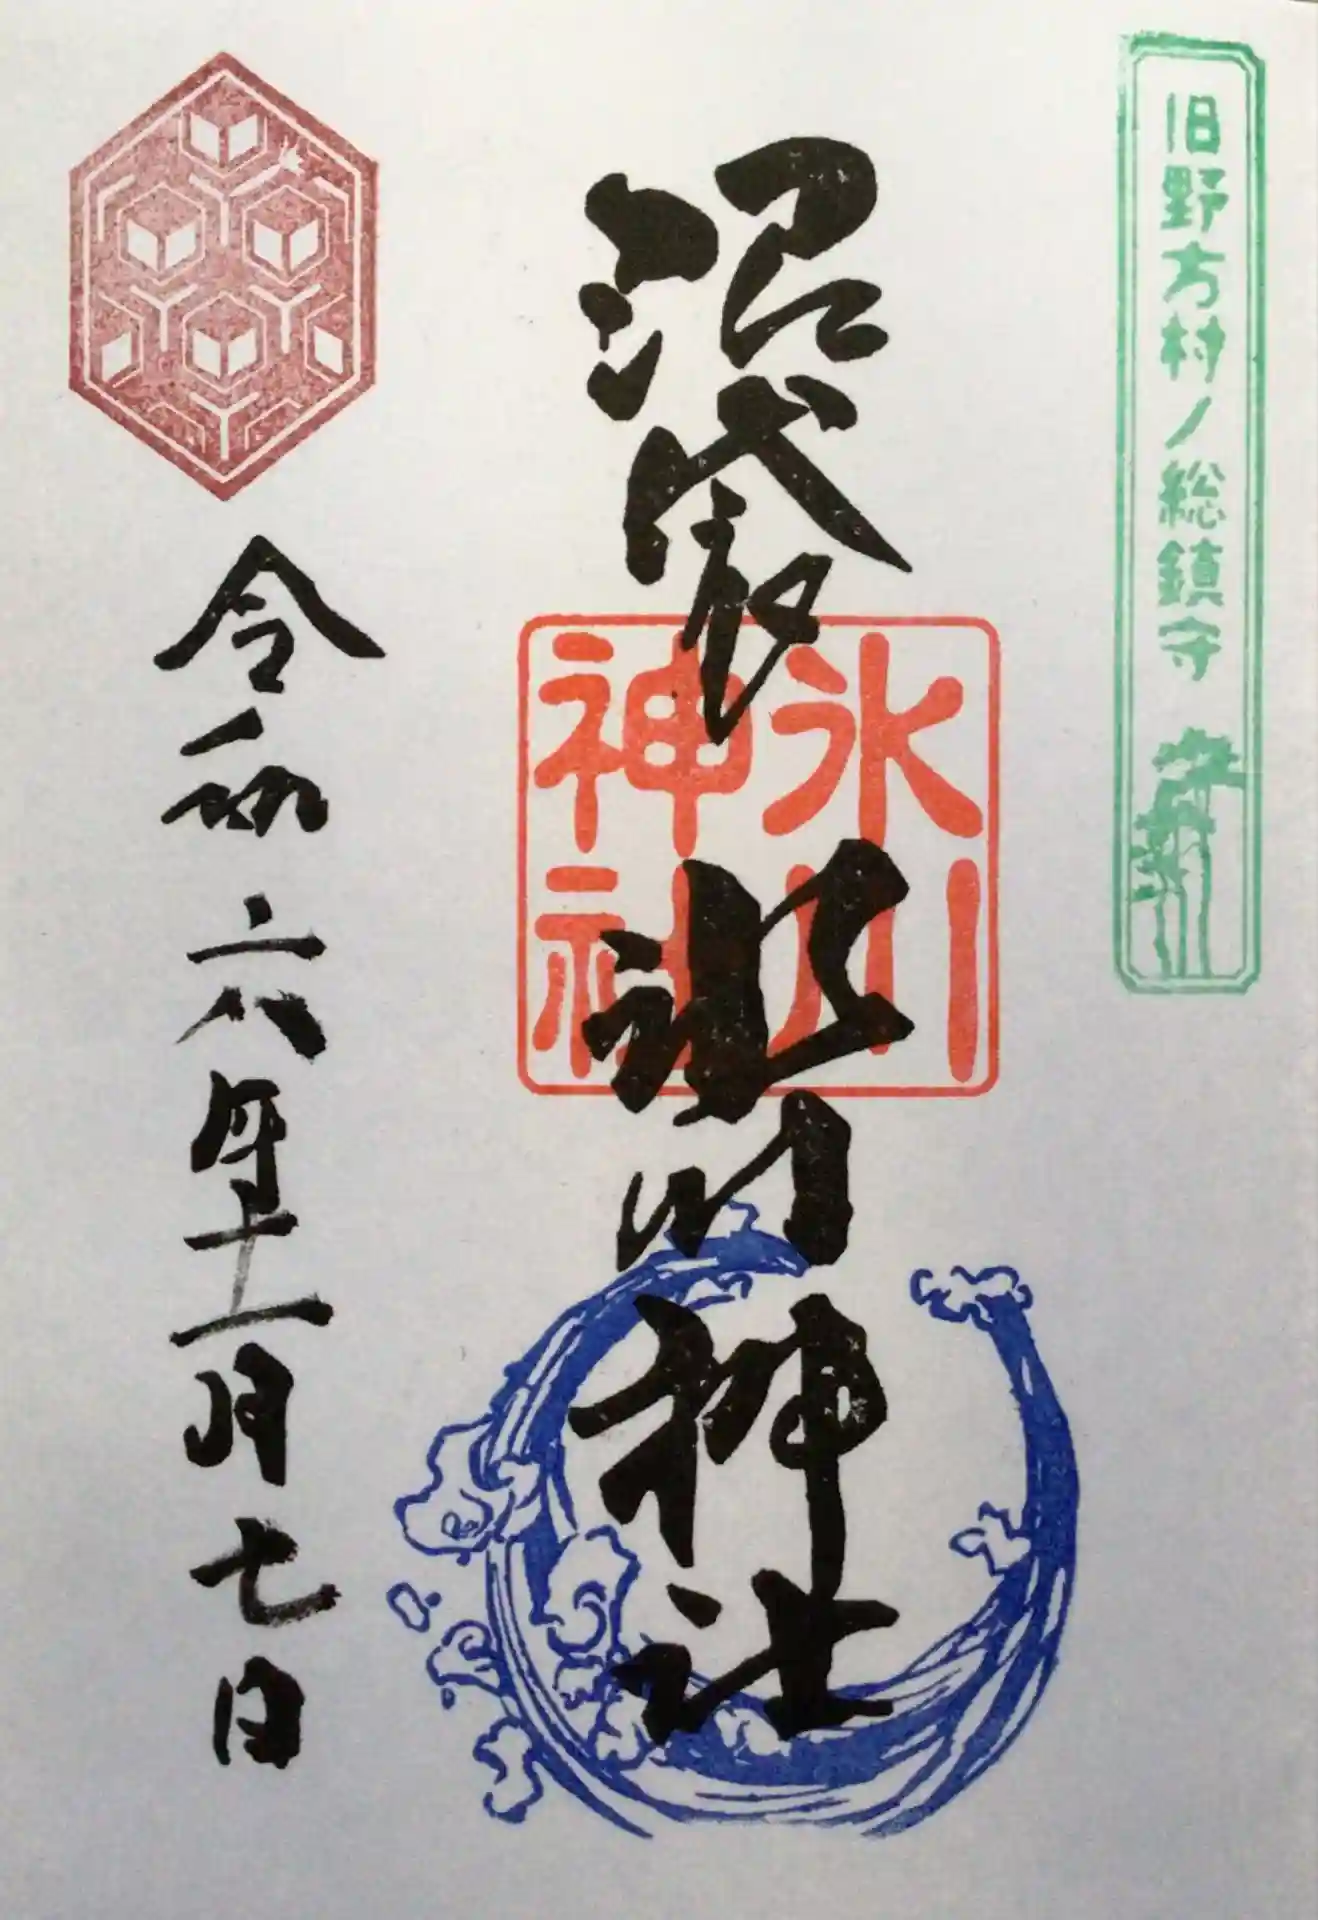 旧野方村ノ総鎮守
沼袋氷川神社
氷川
神社
令和六年十一月七日